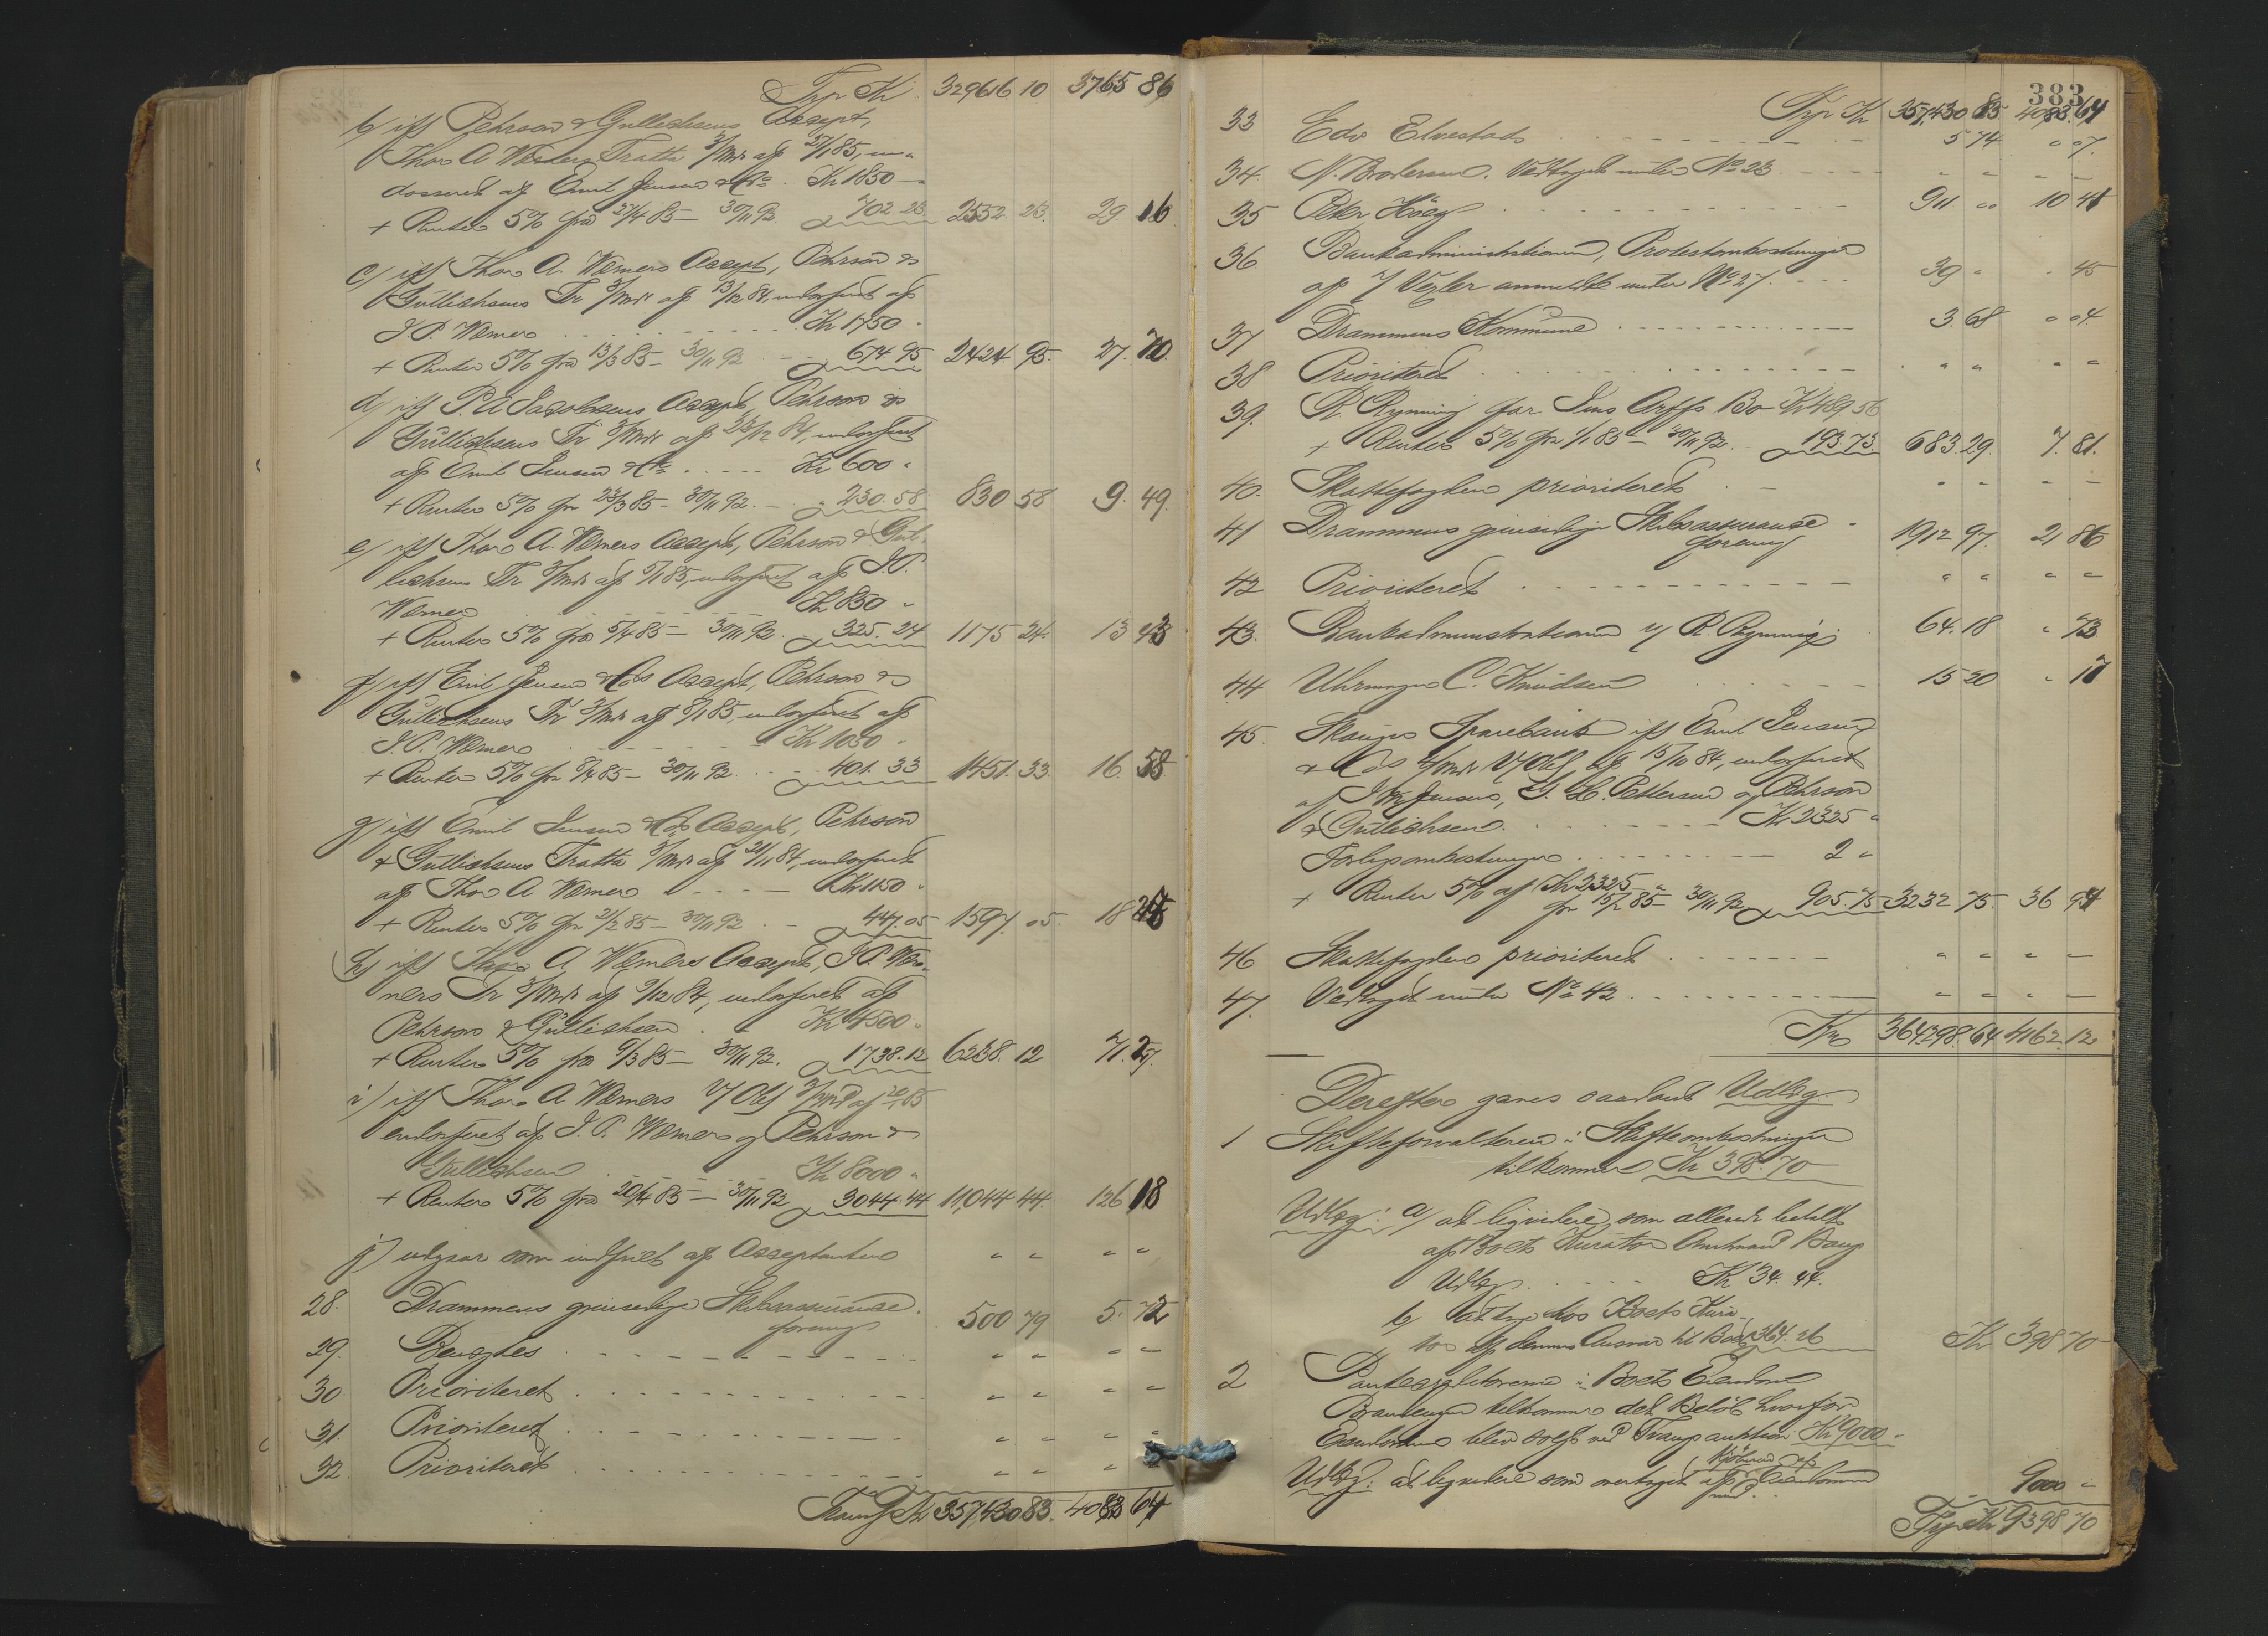 Trp Kr 329616 10 3765 86
b) iflg Pehrson & Gullichsens Accept,
Thor A Wærners Tratta 3/Mdr af 27/1 85, en-
dosseret af Emil Jensen & Co. Kr 1850 "
+ Renter 5% fra 27/4 85 – 30/11 92. " 702.23 2552 23. 29 16
c) iflg Thor A. Wærners Accept, Pehrson &
Gullichsens Tr 3/Mdr af 13/12 84, endosseret af
J. P. Wærner . . . Kr 1750 "
+ Renter 5% fra 13/3 85 – 30/11 92 . " 674.95 2424 95. 27. 70.
d) iflg P. A Jacobsens Accept, Pehrson &
Gullichsens Tr 3/Mdr af 23/12 84, endosseret
af Emil Jensen & Co . . . . . Kr 600 "
+ Renter 5% fra 23/3 85 – 30/11 92. – " 230.58 830 58 9. 49.
e) iflg Thor A. Wærners Accept, Pehrson & Gul-
lichsens Tr 3/Mdr af 5/1 85, endosseret af J. P.
Wærner . . . Kr 850 "
+ Renter 5% fra 5/4 85 – 30/11 92. 325.24 1175 24. 13 43
f) iflg Emil Jensen & Co's Accept, Pehrson &
Gullichsens Tr 3/Mdr af 8/1 85, endosseret af
J. P. Wærner . . . Kr 1050 "
+ Renter 5% fra 8/4 85 – 30/11 92 . . . 401.33 1451.33. 16. 58
g) iflg Emil Jensen & Co's Accept, Pehrson
& Gullichsens Tratta 3/Mdr af 21/11 84, endosseret
af Thor A Wærner . . . Kr 1150 "
+ Renter 5% fra 21/2 85 – 30/11 92 . – 447.05 1597. 05. 18
h) iflg Thor A Wærners Accept, J P. Wær-
ners Tr 3/Mdr af 9/12 84, endosseret af
Pehrson & Gullichsen . . Kr 4500 "
+ Renter 5% fra 9/3 85 – 30/11 92. 1738.12 6238. 12 71. 27.
i) iflg Thor A Wærners V/Obl 3/Md af 20/1 85
endosseret af J. P. Wærner og Pehrson &
Gullichsen . . . Kr 8000 "
+ Renter 5% fra 20/4 85 – 30/11 92 3044.44 11,044 44. 126 18
j) udgaar som indfriet af Acceptanten " " " "
28. Drammens gjensidige Skibsassurance-
forening 500 79 5. 72
29. Benegtes . . . " " " "
30. Prioriteret . . . " " " "
31. Prioriteret . . . " " " "
32. Prioriteret . . . " " " "
Transp Kr 357,430 83. 4083 64
383
Trp Kr 357,430 83 4083.64
33 Edv Elvestad . . . 5 74 " 07.
34. N. Brodersen. Vedtaget under No 23 . . . " " " "
35 Peter Höeg . . . 911. " 10 41
36 Bankadministrationen, Protestomkostninger
af 7 Vexler anmeldte under No 27. . . . 39 " " 45
37 Drammens Kommune . . . 3.68 " 04
38 Prioriteret . . . " " " "
39. R. Rynning for Jens Arffs Bo Kr 489 56
+ Renter 5% fra 1/1 85 – 30/11 92 . 193.73. 683.29. 7. 81.
40. Skattefogden prioriteret . – " " " "
41 Drammens gjensidige Skibsassurance-
forening 1912 97. 21 86
42 Prioriteret . . . " " " "
43. Bankadministrationen v/ R. Rynning. 64.18 " 73
44 Uhrmager C. Knudsen . . . 15 20 " 17
45. Skauger Sparebank iflg Emil Jensen
& Co's 4/Mdr V/Obl. af 15/10 84, endosseret
af Jensen, S. H. Pettersen og Pehrson
& Gullichsen . . . Kr 2325 "
Forligsomkostninger . . . 2 "
+ Renter 5% af Kr 2325 "
fra 15/2 85 – 30/11 92 905.75 3232 75. 36 94
46 Skattefogden prioriteret . . . " " " "
47. Vedtaget under No 42 . . . " " " "
Kr 364298.64 4162.12
Derefter gaves saadant Udlæg:
1 Skifteforvalteren i Skifteomkostninger
tilkommer Kr 398.70
Udlæg: a) at liqvidere som allerede betalt
af Boets Kurator Amtmand Bang
Udlæg . . . Kr 34.44.
b) Udlæg hos Boets Kura-
tor af dennes Ansvar til Boet 364.26 Kr 398 70
2 Pantecreditorerne i Boets Eiendom
Brantenger tilkommer det Beløb hvorfor
Eiendommen blev solgt ved Tvangsauktion Kr 9000 "
Udlæg: at liqvidere som overtaget af Kjøberen af Eiendommen 9000 "
Trp Kr 9398 70